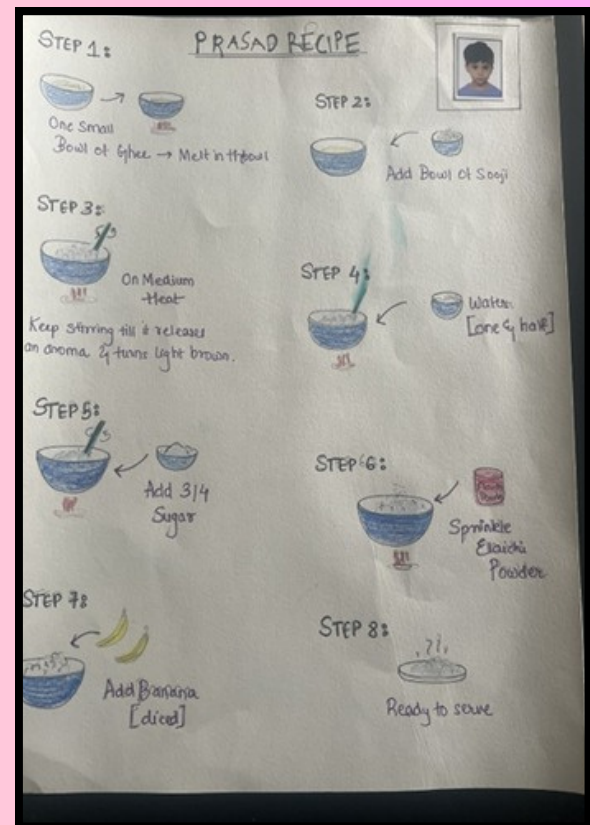 PRASAD RECIPE
STEP 1:
One Small
Bowl of Ghee → Melt in the bowl
STEP 2:
Add Bowl of Sooji
STEP 3:
On Medium
Heat
Keep stirring till it releases
an aroma & turns light brown.
STEP 4:
Water
[one & half]
STEP 5:
Add 3/4
Sugar
STEP 6:
Sprinkle
Elaichi
Powder
STEP 7:
Add Banana
[diced]
STEP 8:
Ready to serve